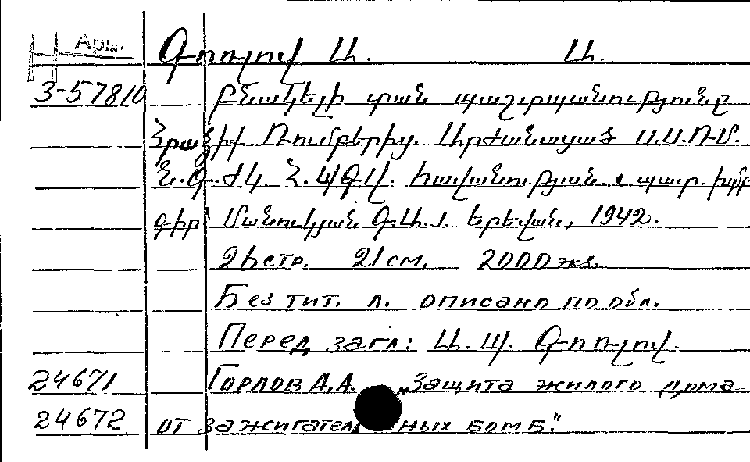 Арм. Գոռլով Ա. Ա.
3-57810 Բնակելի տան պաշտպանությունը
հրաձիգ Ռումբերից. Արժանացած Ա.Ս.Ռ.Մ.
Ն.Գ.ԺԿ Հ.ՍԳՎ. հավանության պատ. խմբ
գիր Մանուկյան Գ.Ա.: Երեվան, 1942.
26 стр. 21 см. 2000 экз.
Без тит. л. описано по обл.
Перед загл: Ա. Ա. Գոռլով.
24671 Горлов А.А. „Защита жилого дома
24672 от зажигательных бомб."